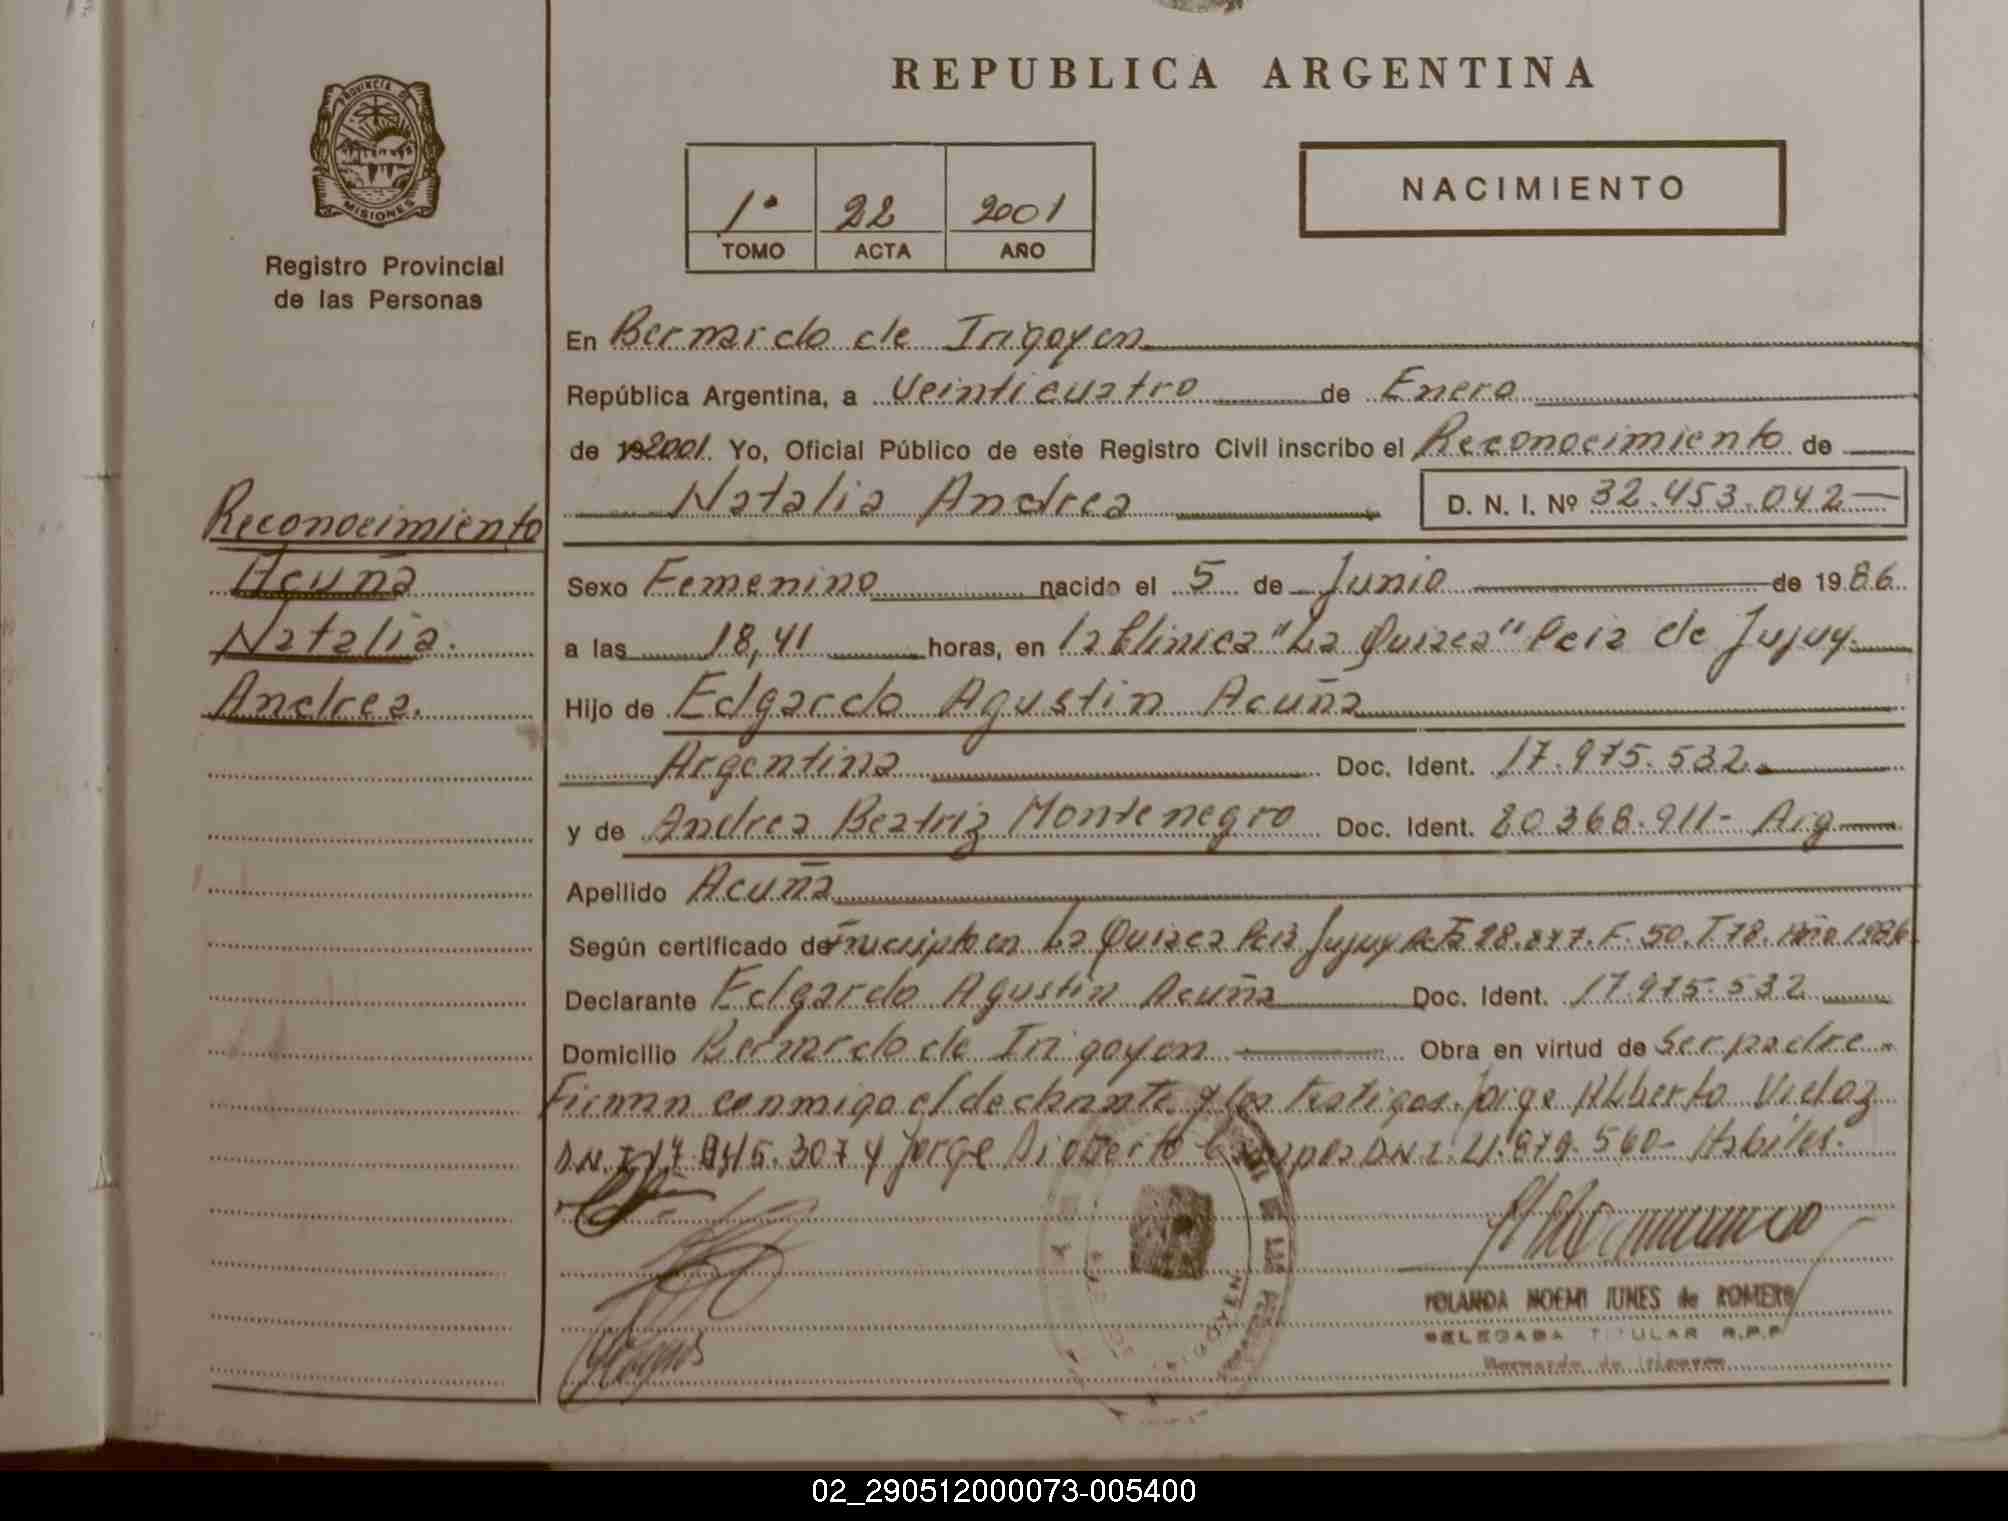 REPUBLICA ARGENTINA
PROVINCIA DE
MISIONES
Registro Provincial
de las Personas
1º 22 2001
TOMO ACTA AÑO
NACIMIENTO
En Bernardo de Irigoyen
República Argentina, a Veinticuatro de Enero
de 192001. Yo, Oficial Público de este Registro Civil inscribo el Reconocimiento de
Natalia Andrea D. N. I. Nº 32.453.042
Reconocimiento
Acuña
Natalia.
Andrea.
Sexo Femenino nacido el 5 de Junio de 1986
a las 18,41 horas, en la Clinica "La Quiaca" Pcia de Jujuy.
Hijo de Edgardo Agustin Acuña
Argentina Doc. Ident. 17.975.532.
y de Andrea Beatriz Montenegro Doc. Ident. 20368.911- Arg
Apellido Acuña
Según certificado de Inscripto en La Quiaca Pcia Jujuy F. 50. T 78. Año 1986
Declarante Edgardo Agustin Acuña Doc. Ident. 17.975.532
Domicilio Bernardo de Irigoyen Obra en virtud de Ser padre
Firman conmigo el declarante y los testigos. Jorge Alberto
307 y Jorge 560- Habiles.
YOLANDA NOEMI JUNES de ROMERO
DELEGADA TITULAR R.P.P
Bernardo de Irigoyen
02_290512000073-005400